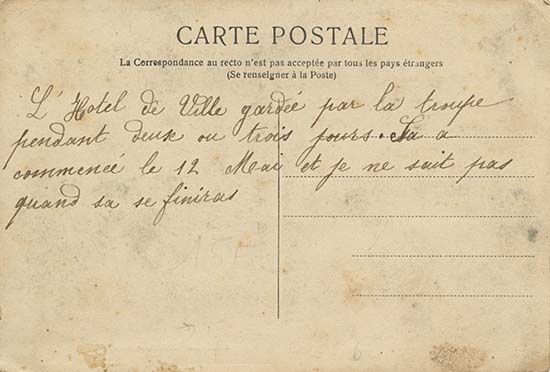 CARTE POSTALE
La Correspondance au recto n'est pas acceptée par tous les pays étrangers
(Se renseigner à la Poste)
L'Hotel de Ville gardée par la troupe
pendant deux ou trois jours. Sa a
commencé le 12 Mai et je ne sait pas
quand sa se finiras